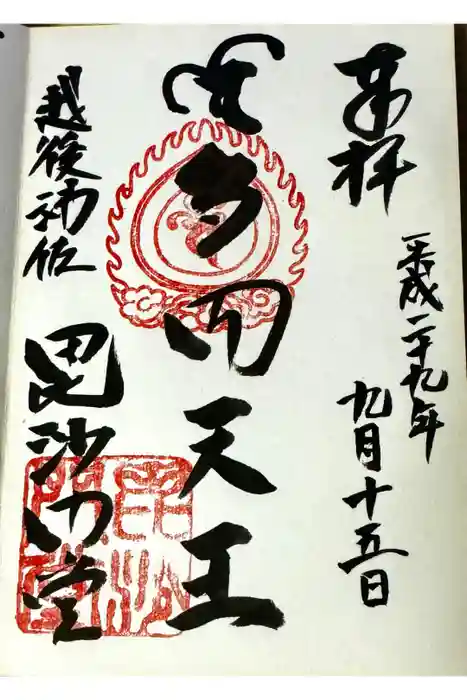 奉拝
平成二十九年
九月十五日
多聞天王
越後浦佐
毘沙門堂
毘沙
門堂